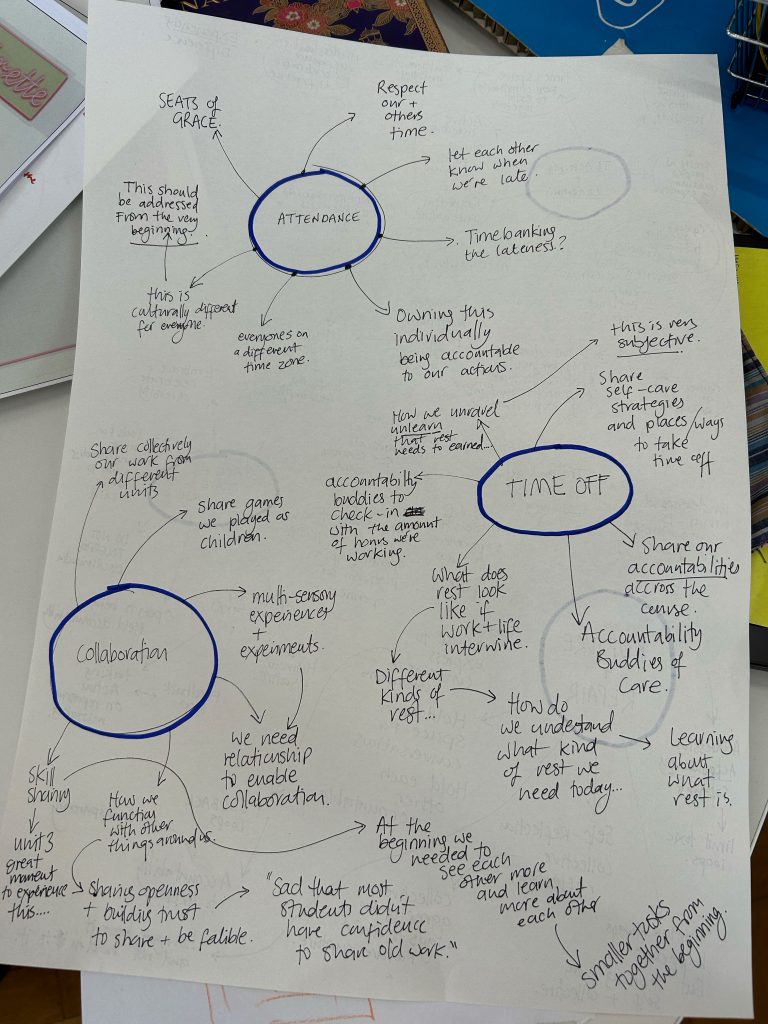 SEATS of
GRACE.
Respect
our +
others
time.
let each other
know when
we're late.
This should
be addressed
From the very
beginning.
ATTENDANCE
Timebanking
the lateness?
this is
culturally different
for everyone.
everyones on
a different
time zone.
Owning this
individually
being accountable
to our actions.
this is very
subjective.
How we unravel
unlearn
that rest
needs to earned...
Share
self-care
strategies
and places/ways
to take
time off
TIME OFF
accountability
buddies to
check-in
with the amount
of hours we're
working.
What does
rest look
like if
work + life
interwine.
Share our
accountabilities
accross the
course.
Accountability
Buddies of
Care.
Different
kinds of
rest...
How do
we understand
what kind
of rest we
need today...
Learning
about
what
rest is.
Share collectively
our work from
different
units
Share games
we played as
children.
multi-sensory
experiences
+
experiments.
Collaboration
we need
relationship
to enable
collaboration.
Skill
sharing
unit 3
great
moment
to experience
this....
How we
function
with other
things around us.
Sharing openness
+ building trust
to share + be falible.
"Sad that most
students didn't
have confidence
to share old work."
At the
beginning we
needed to
see each
other more
and learn
more about
each other
smaller tasks
together from
the beginning.